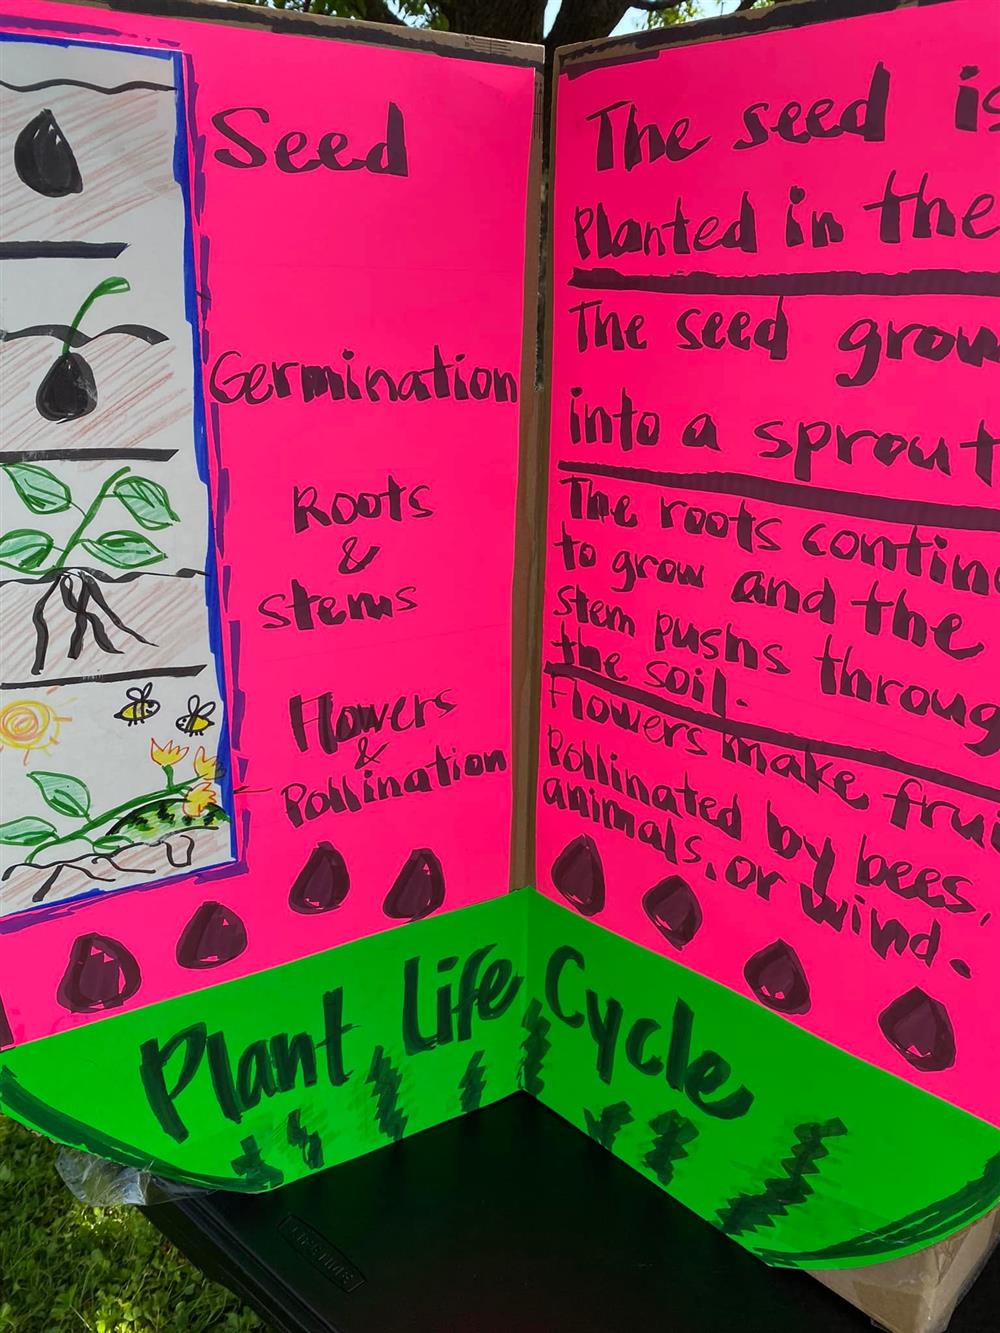 Seed
Germination
Roots
&
Stems
Flowers
&
Pollination
The seed is
Planted in the
The seed grow
into a sprout
The roots contin
to grow and the
stem pushs throug
the soil.
Flowers make frui
Pollinated by bees,
animals, or wind.
Plant Life Cycle
LIFETIME